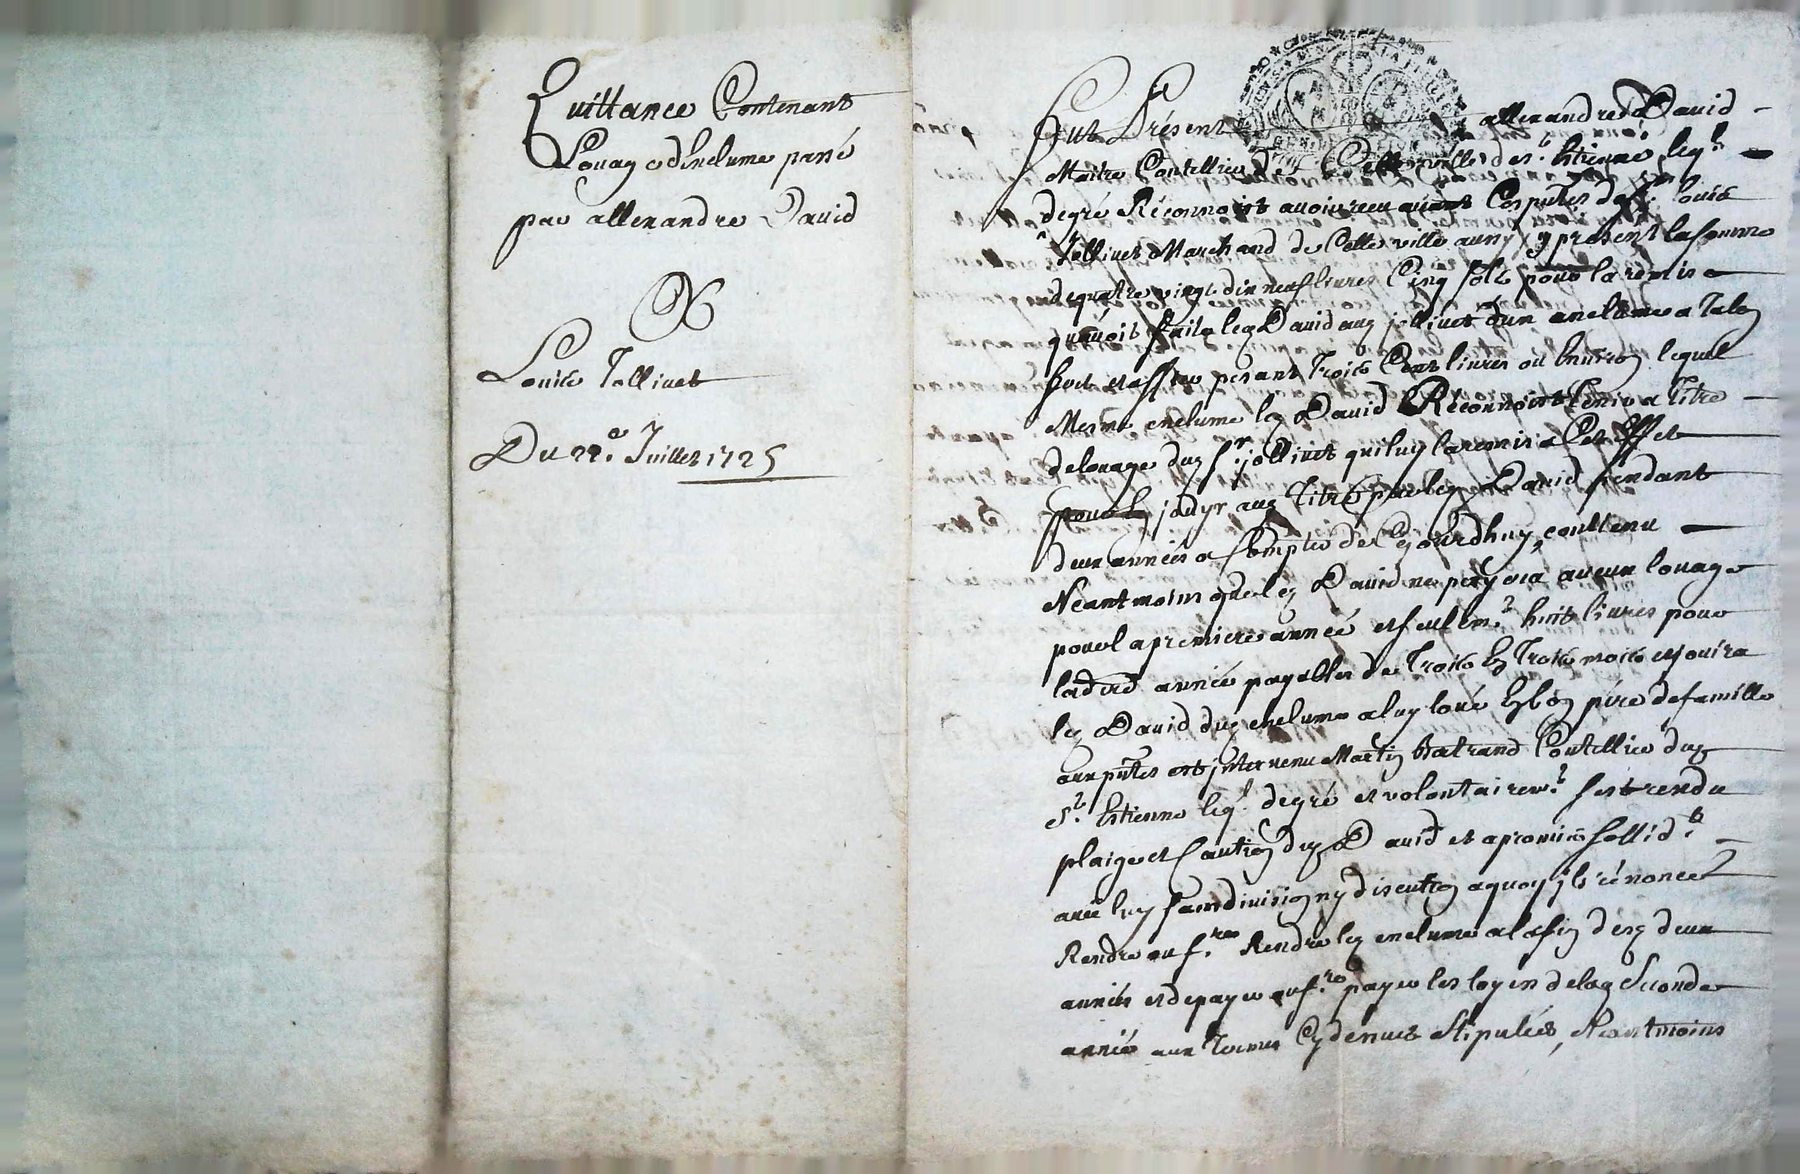 Quittance Contenant
Louage d'Enclume passé
par allexandre David
&
Louis Jollivet
Du 22e. Juillet 1725
Fut Présent allexandre David
Maitre Coutellier de Cette ville de St. Estienne leql.
de gré Réconnoist avoir reçu avant Ces pntes de Sr. louis
Jollivet Marchand de Cette ville aussy y présent la somme
de quatre vingt dix neuf livres Cinq sols pour la remise
qu'avoit faite led David aud jollivet d'un anclume a Talon
fort et assieu pesant Trois Cent livres ou Environ lequel
Mesme enclume led David Réconnoist tenir a Titre
de louage dud Sr. jollivet qui luy la remis a Cet Effet
pour En jouyr aud Titre par led David pendant
deux années a Compter de Cejourdhuy, convenu
Néantmoins que led David ne payera aucun louage
pour la premiere année et seulemt. huit livres pour
lad année payables de Trois En Trois mois et jouira
led David dud enclume a luy loué En bon père de famille
aux pntes est jntervenu Martin Bertrand Coutellier dud
St. Estienne leql. de gré et volontairemt. s'est rendu
plaige et Caution dud David et a promis sollidt.
avec luy sans division ny discution a quoy jls rénoncent
Rendre ou f.re Rendre led enclume a la fin desd deux
années et de payer ou f.re payer les loyers de lad Seconde
année aux Termes Cy dessus Stipulés, Néantmoins